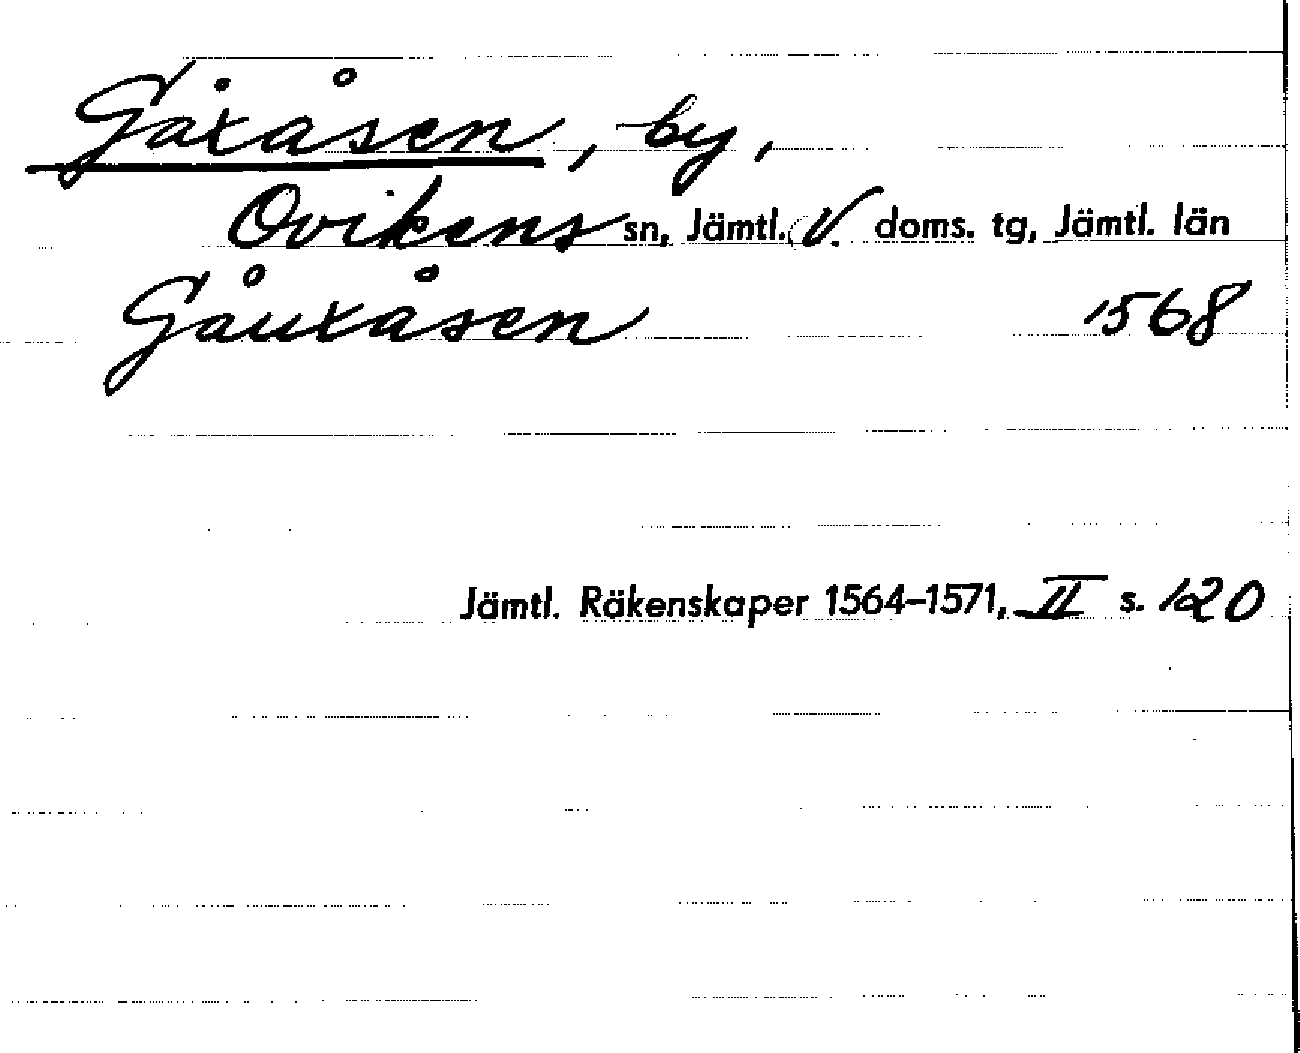 Gåxåsen, by,
Ovikens sn, Jämtl. V. doms. tg, Jämtl. län
Gåuxåsen 1568
Jämtl. Räkenskaper 1564–1571, II s. 120